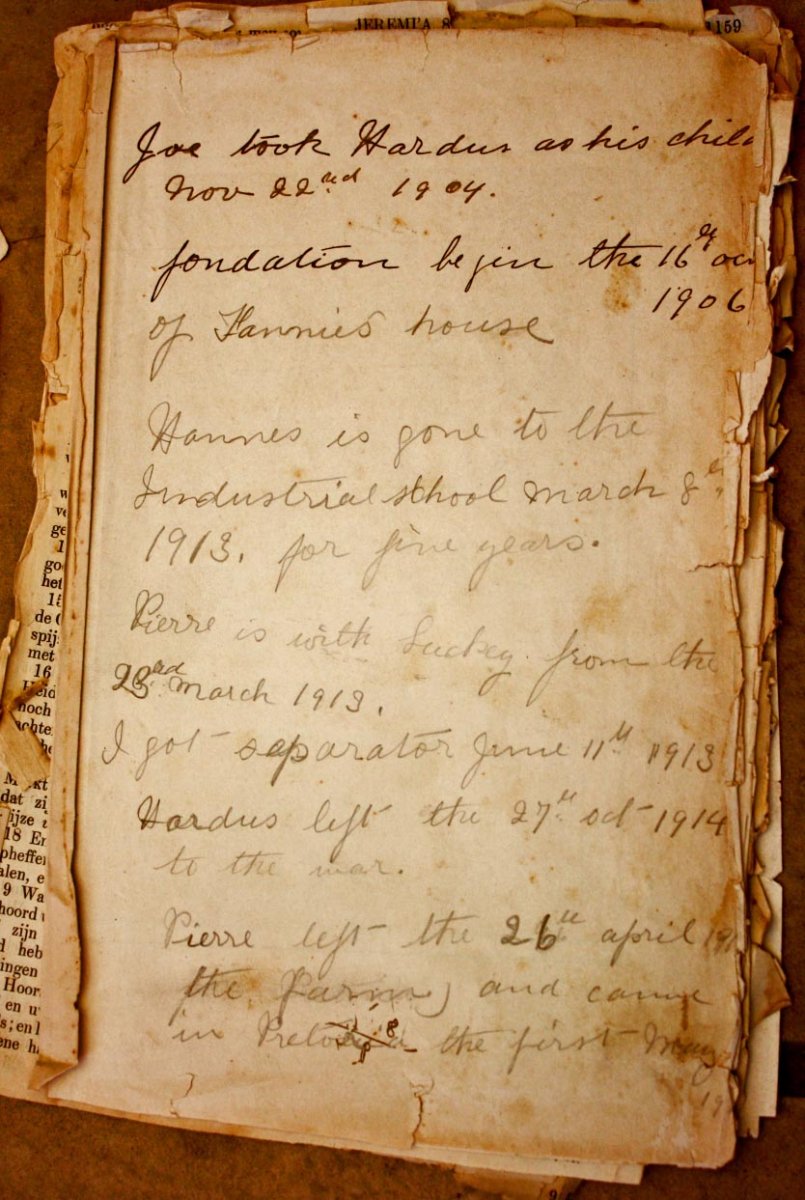 JEREMIA 8
1159
Joe took Hardus as his child
Nov 22nd 1904.
fondation begin the 16th
1906
of Hannies house
Hannes is gone to the
Industrial school march 8th
1913. for five years.
Pierre is with from the
23rd march 1913.
I got separator June 11th 1913
Hardus left the 27th oct 1914
to the war.
Pierre left the 26th april
the farm) and came
in the first May
ge
het
de
spij
met
16
noch
dat zij
18 En
9 Wa
zijn
heb
ingen
Hoor
en u